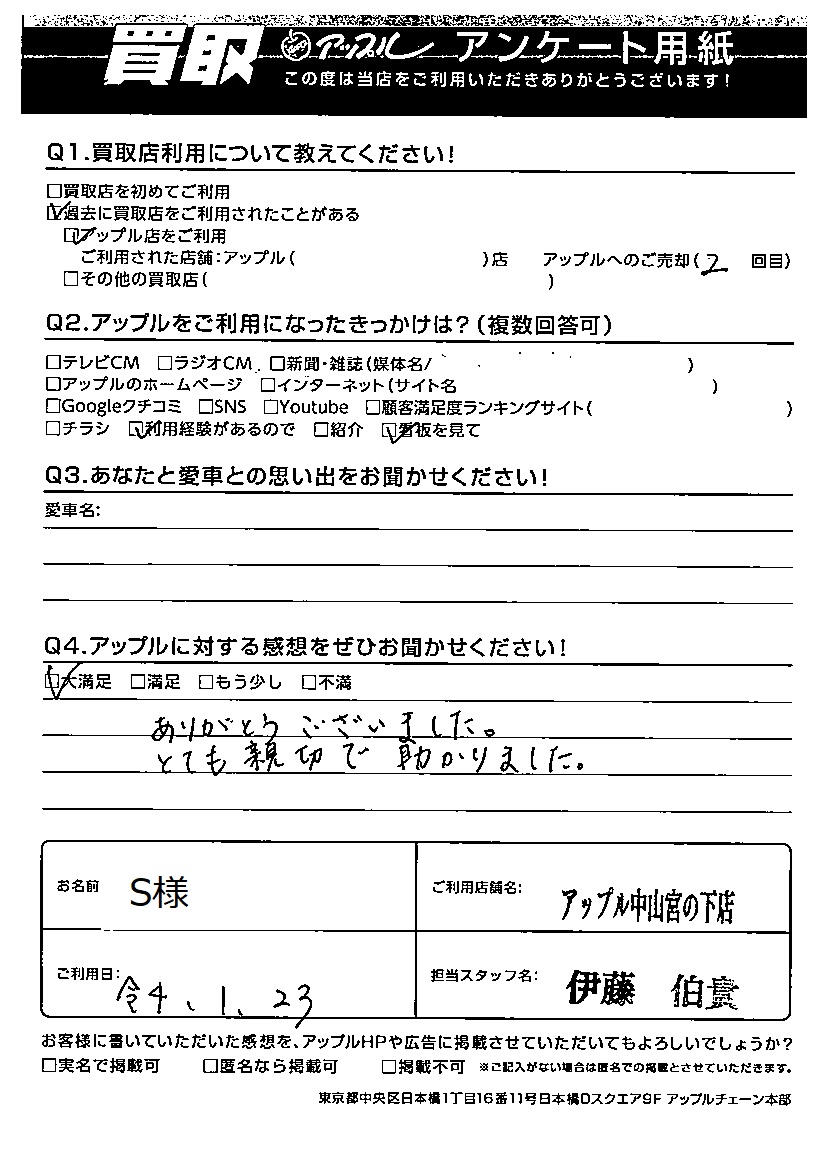 買取 アップル アンケート用紙
この度は当店をご利用いただきありがとうございます!
Q1.買取店利用について教えてください!
□買取店を初めてご利用
☑過去に買取店をご利用されたことがある
☑アップル店をご利用
ご利用された店舗:アップル( )店 アップルへのご売却(2 回目)
□その他の買取店( )
Q2.アップルをご利用になったきっかけは?(複数回答可)
□テレビCM □ラジオCM □新聞・雑誌(媒体名/ )
□アップルのホームページ □インターネット(サイト名 )
□Googleクチコミ □SNS □Youtube □顧客満足度ランキングサイト( )
□チラシ ☑利用経験があるので □紹介 ☑看板を見て
Q3.あなたと愛車との思い出をお聞かせください!
愛車名:
Q4.アップルに対する感想をぜひお聞かせください!
☑大満足 □満足 □もう少し □不満
ありがとうございました。
とても親切で助かりました。
お名前 S様 ご利用店舗名: アップル中山宮の下店
ご利用日: 令4、1、23 担当スタッフ名: 伊藤 伯貴
お客様に書いていただいた感想を、アップルHPや広告に掲載させていただいてもよろしいでしょうか?
□実名で掲載可 □匿名なら掲載可 □掲載不可 ※ご記入がない場合は匿名での掲載とさせていただきます。
東京都中央区日本橋1丁目16番11号日本橋Dスクエア9F アップルチェーン本部